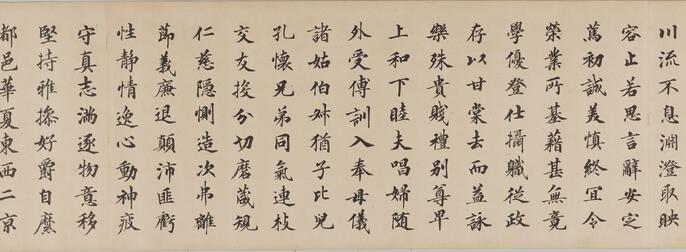 川流不息淵澄取映
容止若思言辭安定
篤初誠美慎終冝令
榮業所基藉甚無竟
學優登仕攝職從政
存以甘棠去而益詠
樂殊貴賤禮別尊卑
上和下睦夫唱婦隨
外受傅訓入奉母儀
諸姑伯叔猶子比兒
孔懷兄弟同氣連枝
交友投分切磨箴規
仁慈隱惻造次弗離
節義廉退顛沛匪虧
性靜情逸心動神疲
守真志滿逐物意移
堅持雅操好爵自縻
都邑華夏東西二京